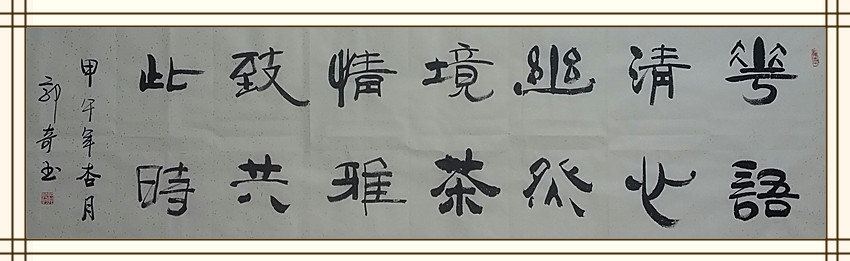 華語
清心
幽然
境茶
情雅
致共
此時
甲午年杏月
郭奇书